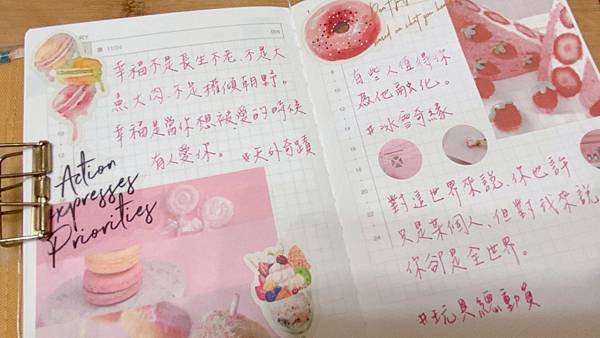 11/04
幸福不是長生不老、不是大
魚大肉、不是權傾朝野。
幸福是當你想被愛的時候
有人愛你。 #天外奇蹟
Action
Expresses
Priorities
有些人值得你
為他融化。
#冰雪奇緣
對這世界來說、你也許
只是某個人、但對我來說
你卻是全世界。
#玩具總動員